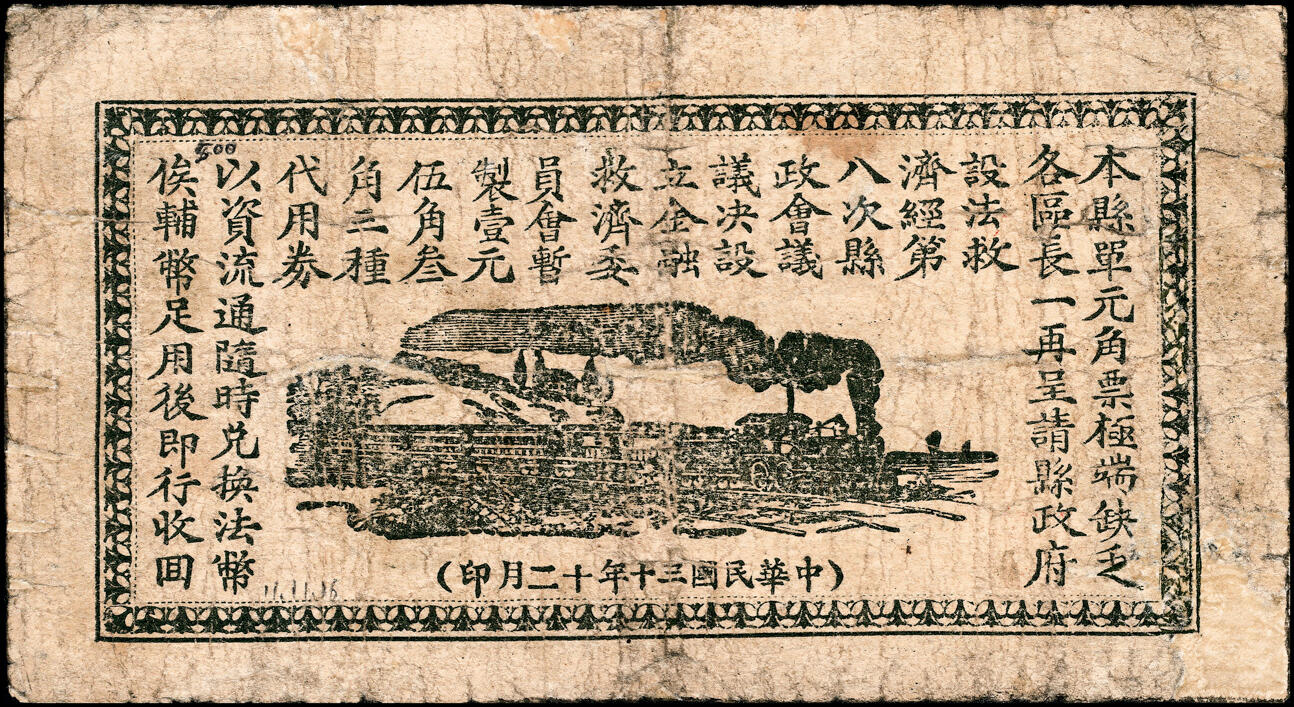 本縣單元角票極端缺乏
各區長一再呈請縣政府
設法救
濟經第
八次縣
政會議
議决設
立金融
救濟委
員會暫
製壹元
伍角叁
角三種
代用券
以資流通隨時兑換法幣
俟輔幣足用後即行收回
(中華民國三十年十二月印)
500
11.11.36